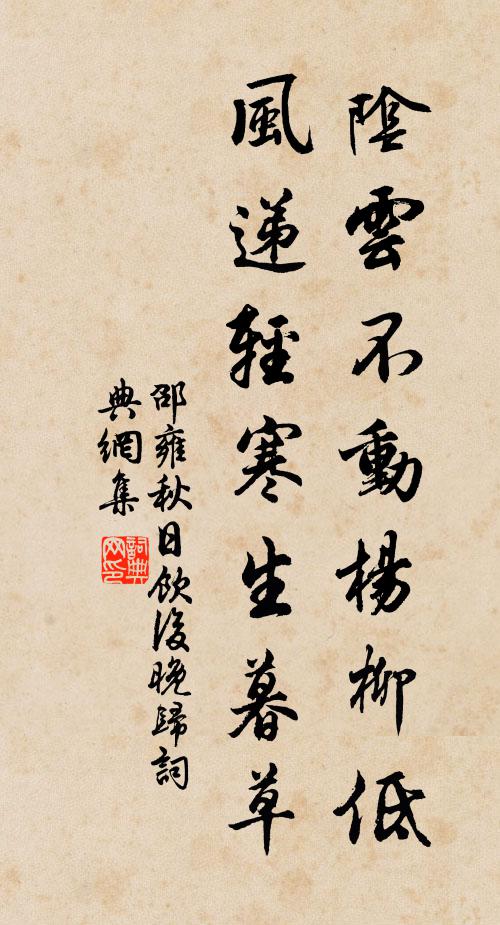 陰雲不動楊柳低
風遞輕寒生暮草
邵雍秋日飲後晚歸詞
典網集
詞典網印